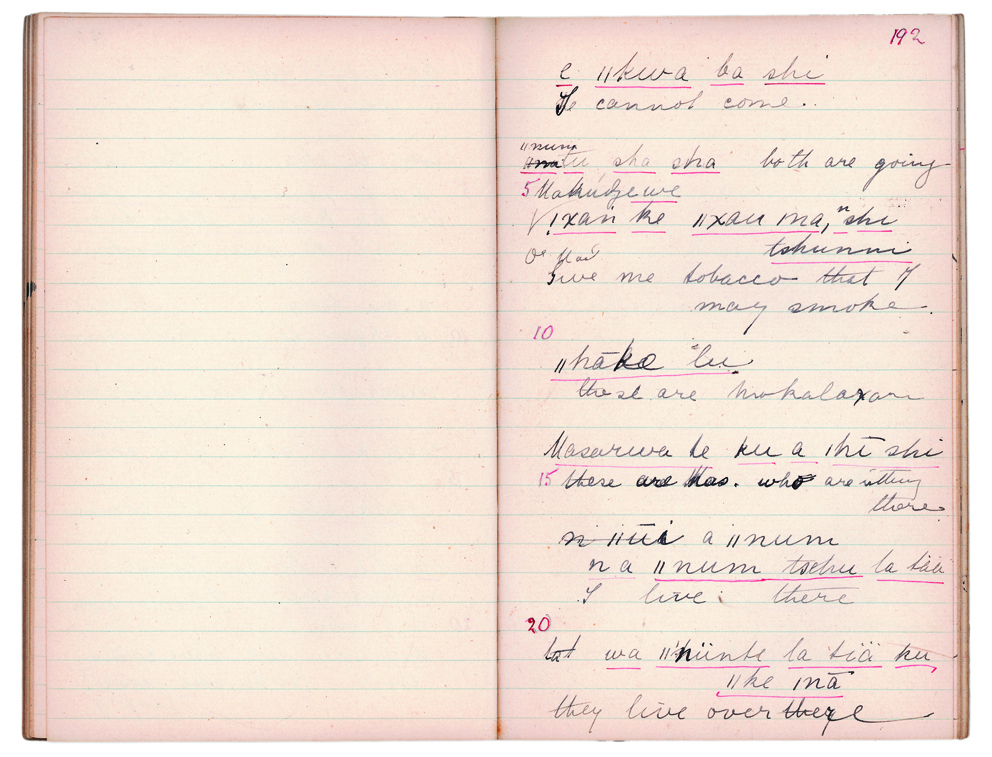 192
e ǁkwa ba shi
He cannot come..
ǁnum
tu sha sha both are going
5 Makudjewe
ǃxan ke ǁxau ma, n shi
tshunni
Give me tobacco that I
may smoke.
10
ǁhāko
these are Makalaxari
Masarwa te ku a ǀhī shi
15 these are Mas. who are sitting
there
a ǁnum
n a ǁnum tschu la tiä
I live there
20
wa la tiä ku,
ǁke ǀnā
they live over there